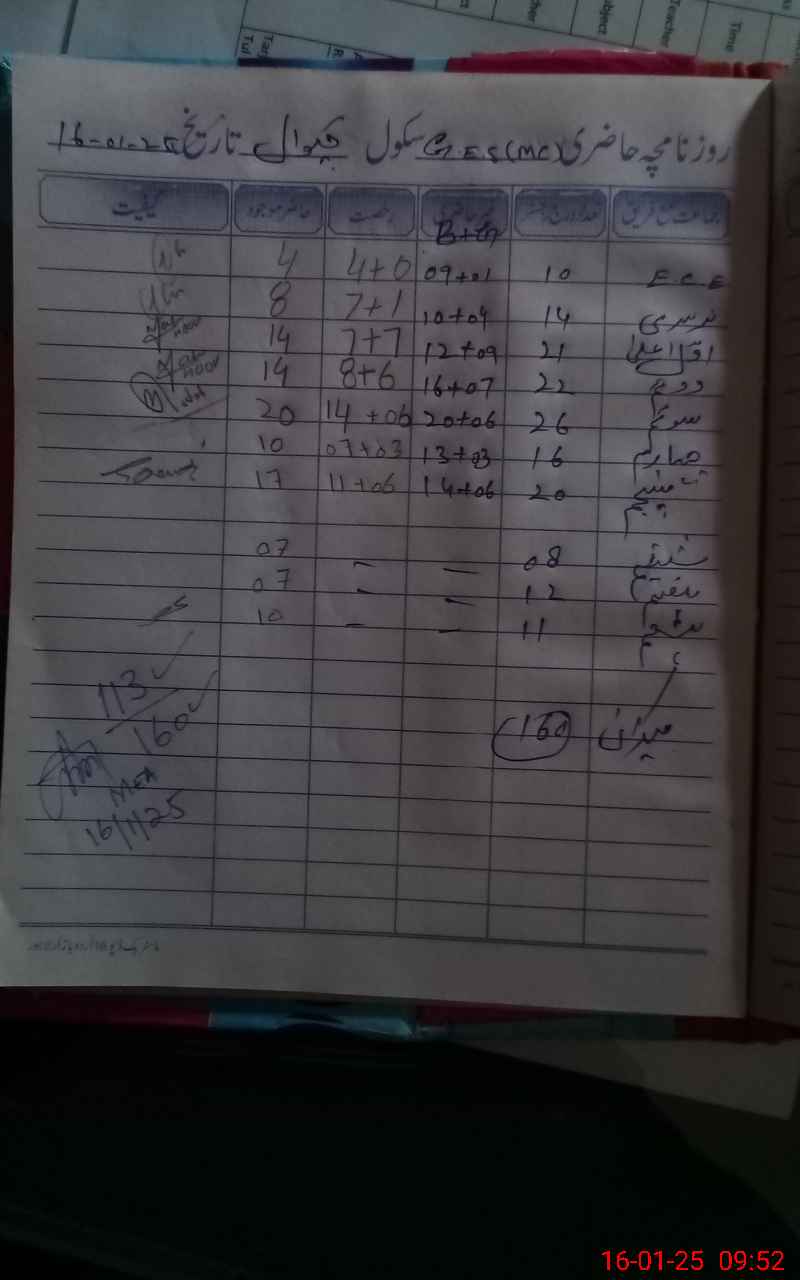 Time
Teacher
Subject
روزنامچہ حاضری G.E.S(MC) سکول چکوال تاریخ 16-01-25
جماعت مع فریق تعداد درج رجسٹر غیر حاضری رخصت حاضر موجود کیفیت
B+G
E.C.E 10 09+01 4+0 4
نرسری 14 10+04 7+1 8
اول اعلیٰ 21 12+09 7+7 14
دوئم 22 16+07 8+6 14
سوئم 26 20+06 14+06 20
چہارم 16 13+03 07+03 10
پنجم 20 14+06 11+06 17
ششم 08 — — 07
ہفتم 12 — — 07
ہشتم 11 — — 10
میزان 160
113
160
MEA
16/1/25
16-01-25 09:52